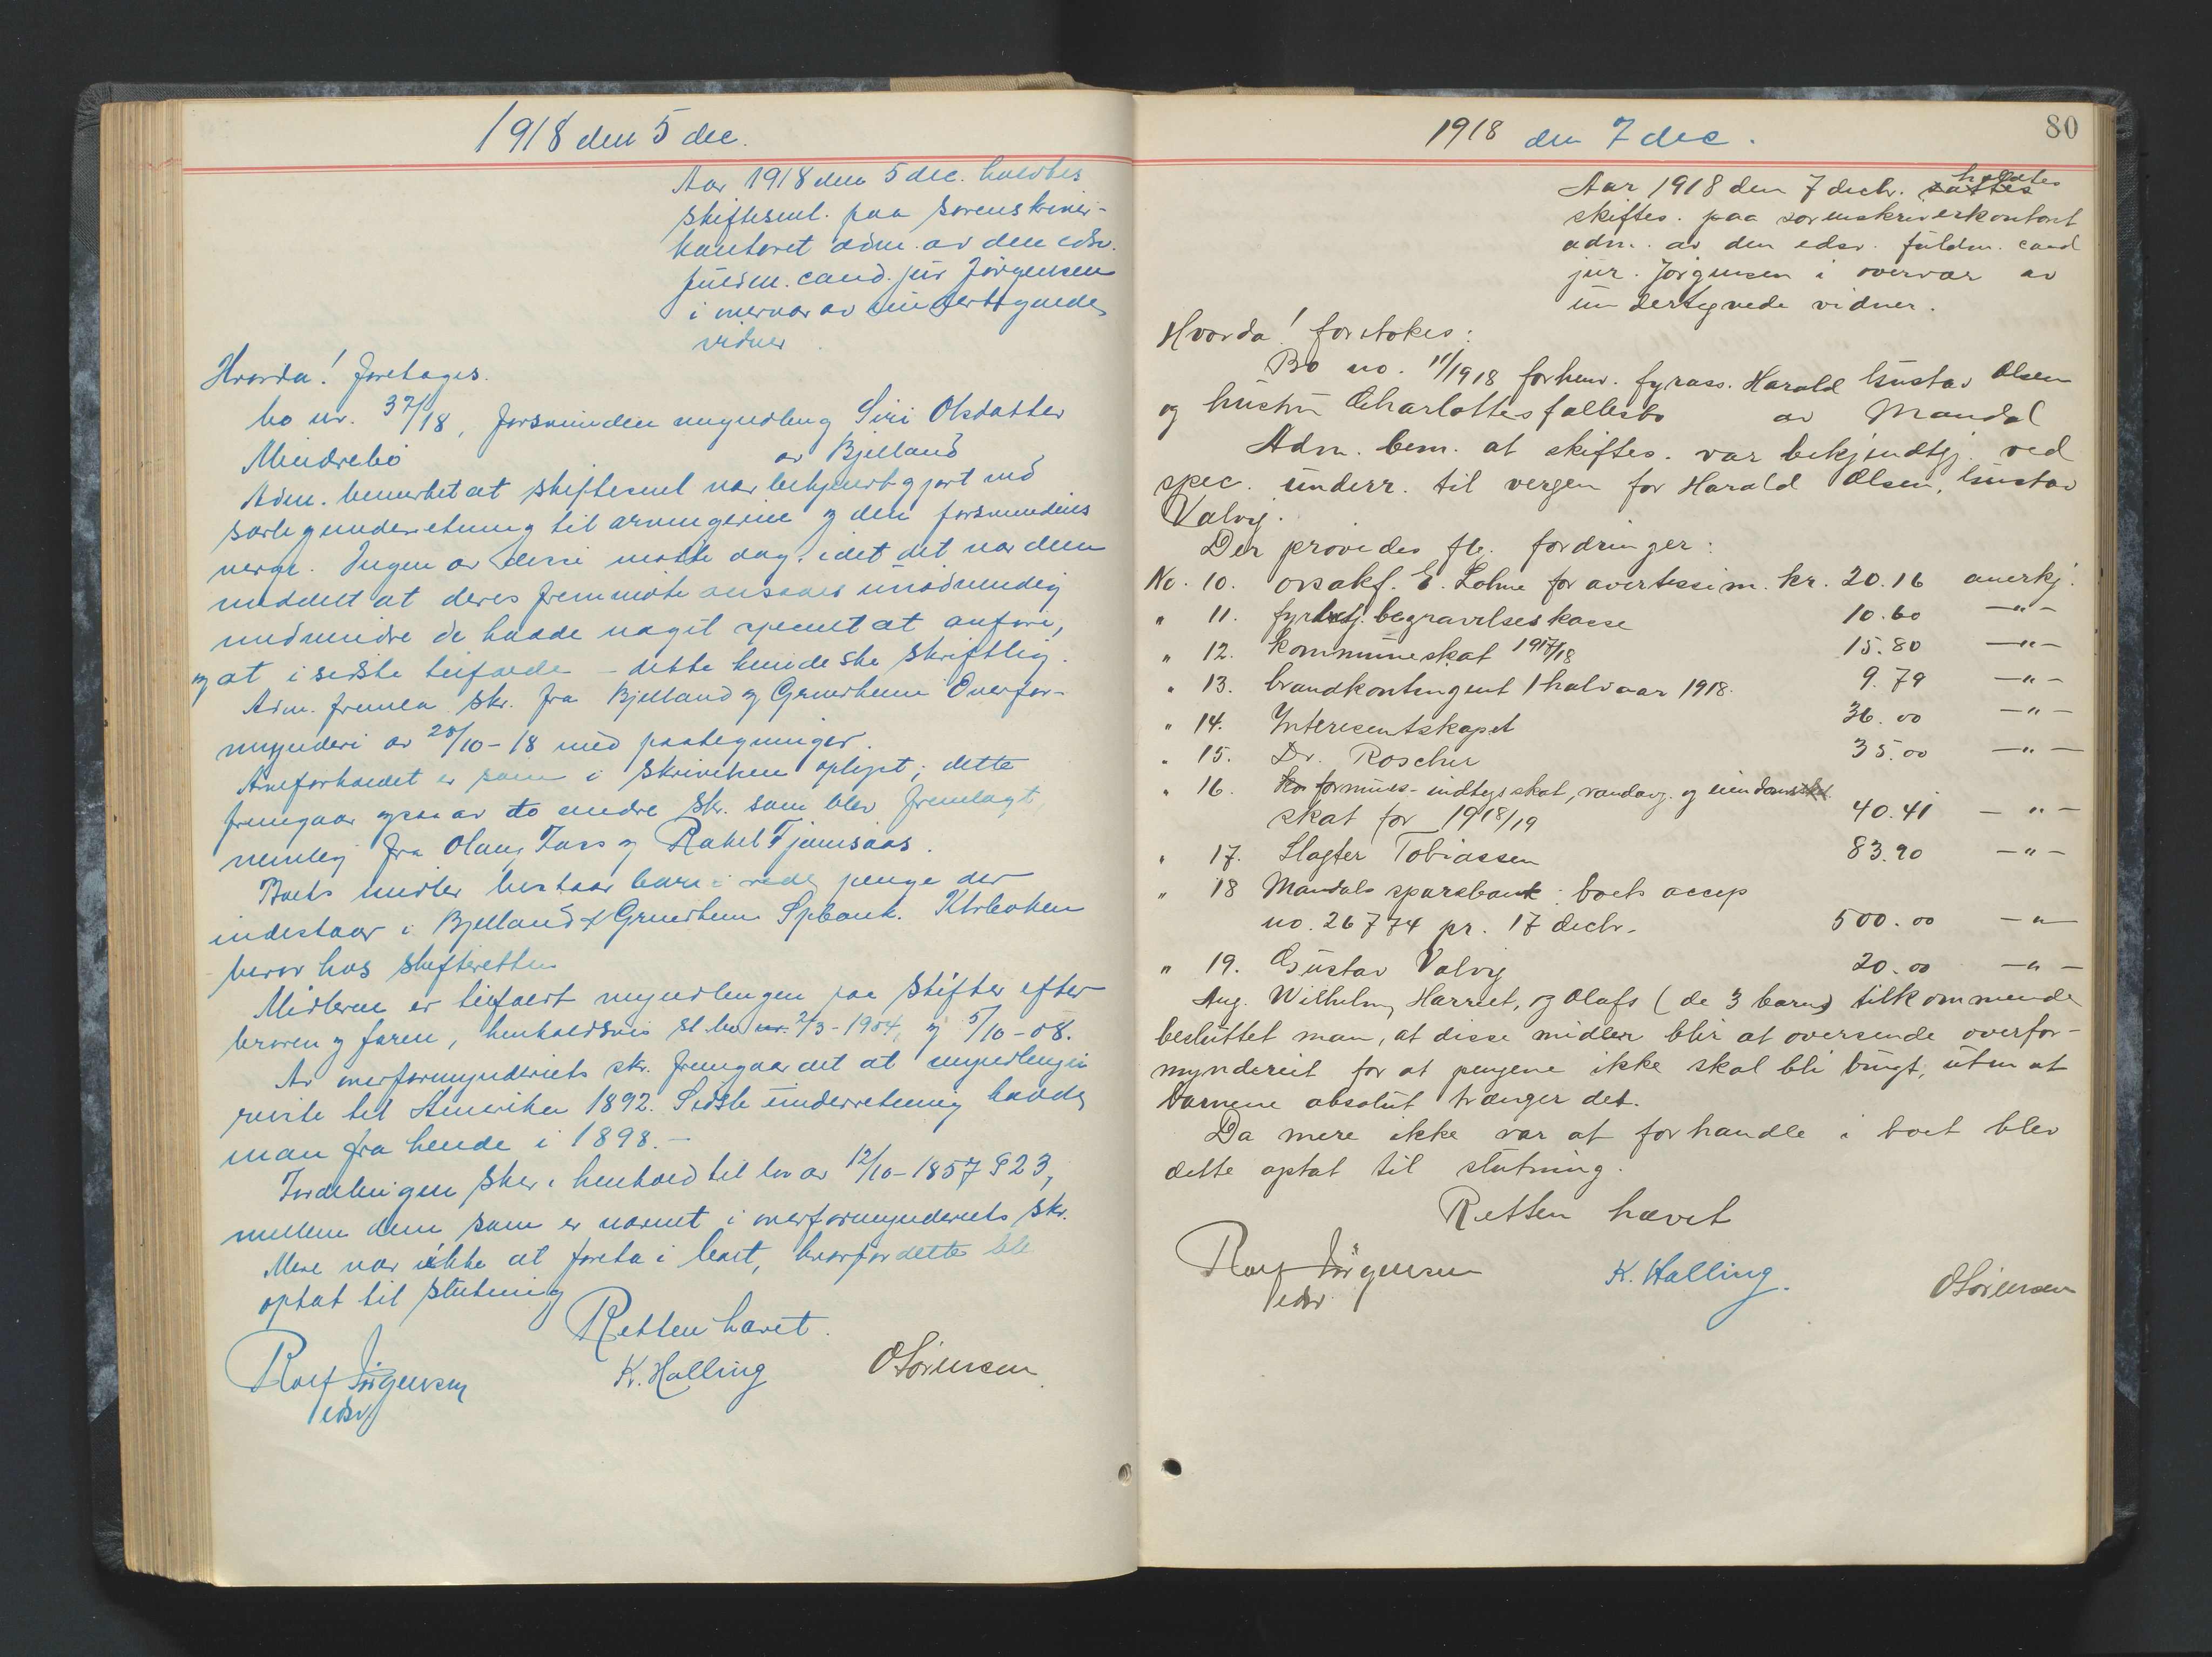 1918 den 5 dec.
Aar 1918 den 5 dec. holdtes
skiftesml. paa sorenskriver-
kontoret adm. av den edsv.
fuldm. cand. jur Jørgensen
i overvær av undertegnede
vidner.
Hvorda! foretages.
bo nr. 37/18, forsvunden myndling Siri Olsdatter
Mindrebø av Bjelland
Adm. bemerket at skiftesml var bekjendtgjort med
særlig underretning til arvingerne og den forsvundnes
verge. Ingen av disse møtte dag. idet det var dem
meddelt at deres fremmøte ansaaes unødvendig
medmindre de hadde noget specielt at anføre,
og at i sidste tilfælde - dette kunde ske skriftlig.
Adm. fremla skr. fra Bjelland og Grindheim Overfor-
mynderi av 28/10-18 med paategninger.
Arveforholdet er som i skrivelsen oplyst; dette
fremgaar ogsaa av to andre skr. som blev fremlagt,
nemlig fra Olaus Tars og Rakel Fjemsaas.
Boets midler bestaar bare i rede penge der
indestaar i Bjelland & Grindheim Spbank. Ktrboken
beror hos skifteretten
Midlerne er tilfaldt myndlingen paa skifter efter
broren og faren, henholdsvis sl. bo nr. 2/3-1904, og 5/10-08.
Av overformynderiets skr. fremgaar det at myndlingen
reiste til Amerika 1892. Sidste underretning havde
man fra hende i 1898.-
Fordelingen sker i henhold til lov av 12/10-1857 § 23,
mellem dem som er nævnt i overformynderiets skr.
Mere var ikke at foreta i boet, hvorfor dette ble
optat til slutning
Retten hævet.
Rolf Jørgensen K. Halling O Sørensen
edsv
80
1918 den 7 dec.
holdtes
Aar 1918 den 7 decbr. sattes
skiftes. paa sorenskriverkontoret
adm. av den edsv. fuldm. cand
jur. Jørgensen i overvær av
undertegnede vidner.
Hvorda! foretokes:
Bo no. 11/1918 forhenv. fyrass. Harald Gustav Olsen
og hustru Charlottes fællesbo av Mandal
Adm. bem. at skiftes. var bekjendtgj. ved
spec. underr. til vergen for Harald Olsen, Gustav
Valvig.
Der provedes flg. fordringer:
No. 10. orsakf. E. Lohne for avertissim. kr. 20.16 anerkj.
" 11. fyrbetj. begravelseskasse 10.60 -"-
" 12. Kommuneskat 1917/18 15.80 -"-
" 13. brandkontingent 1 halvaar 1918. 9.79 -"-
" 14. Interesentskapet 36.00 -"-
" 15. Dr. Roscher 35.00 -"-
" 16. Ko formues- indtegsskat, vandavg. og eiendomsskat
skat for 1918/19 40.41 -"-
" 17. Slagter Tobiassen 83.90 -"-
" 18 Mandals sparebank: boets accep
no. 26774 pr. 17 decbr. 500.00 -"-
" 19. Gustav Valvig 20.00 -"-
Ang. Wilhelm, Harriet, og Olafs (de 3 barns) tilkommende
besluttet man, at disse midler blir at oversende overfor-
mynderiet for at pengene ikke skal bli brugt, uten at
barnene absolut trænger det.
Da mere ikke var at forhandle i boet blev
dette optat til slutning.
Retten hævet
Rolf Jørgensen K. Halling. O Sørensen
edsv.